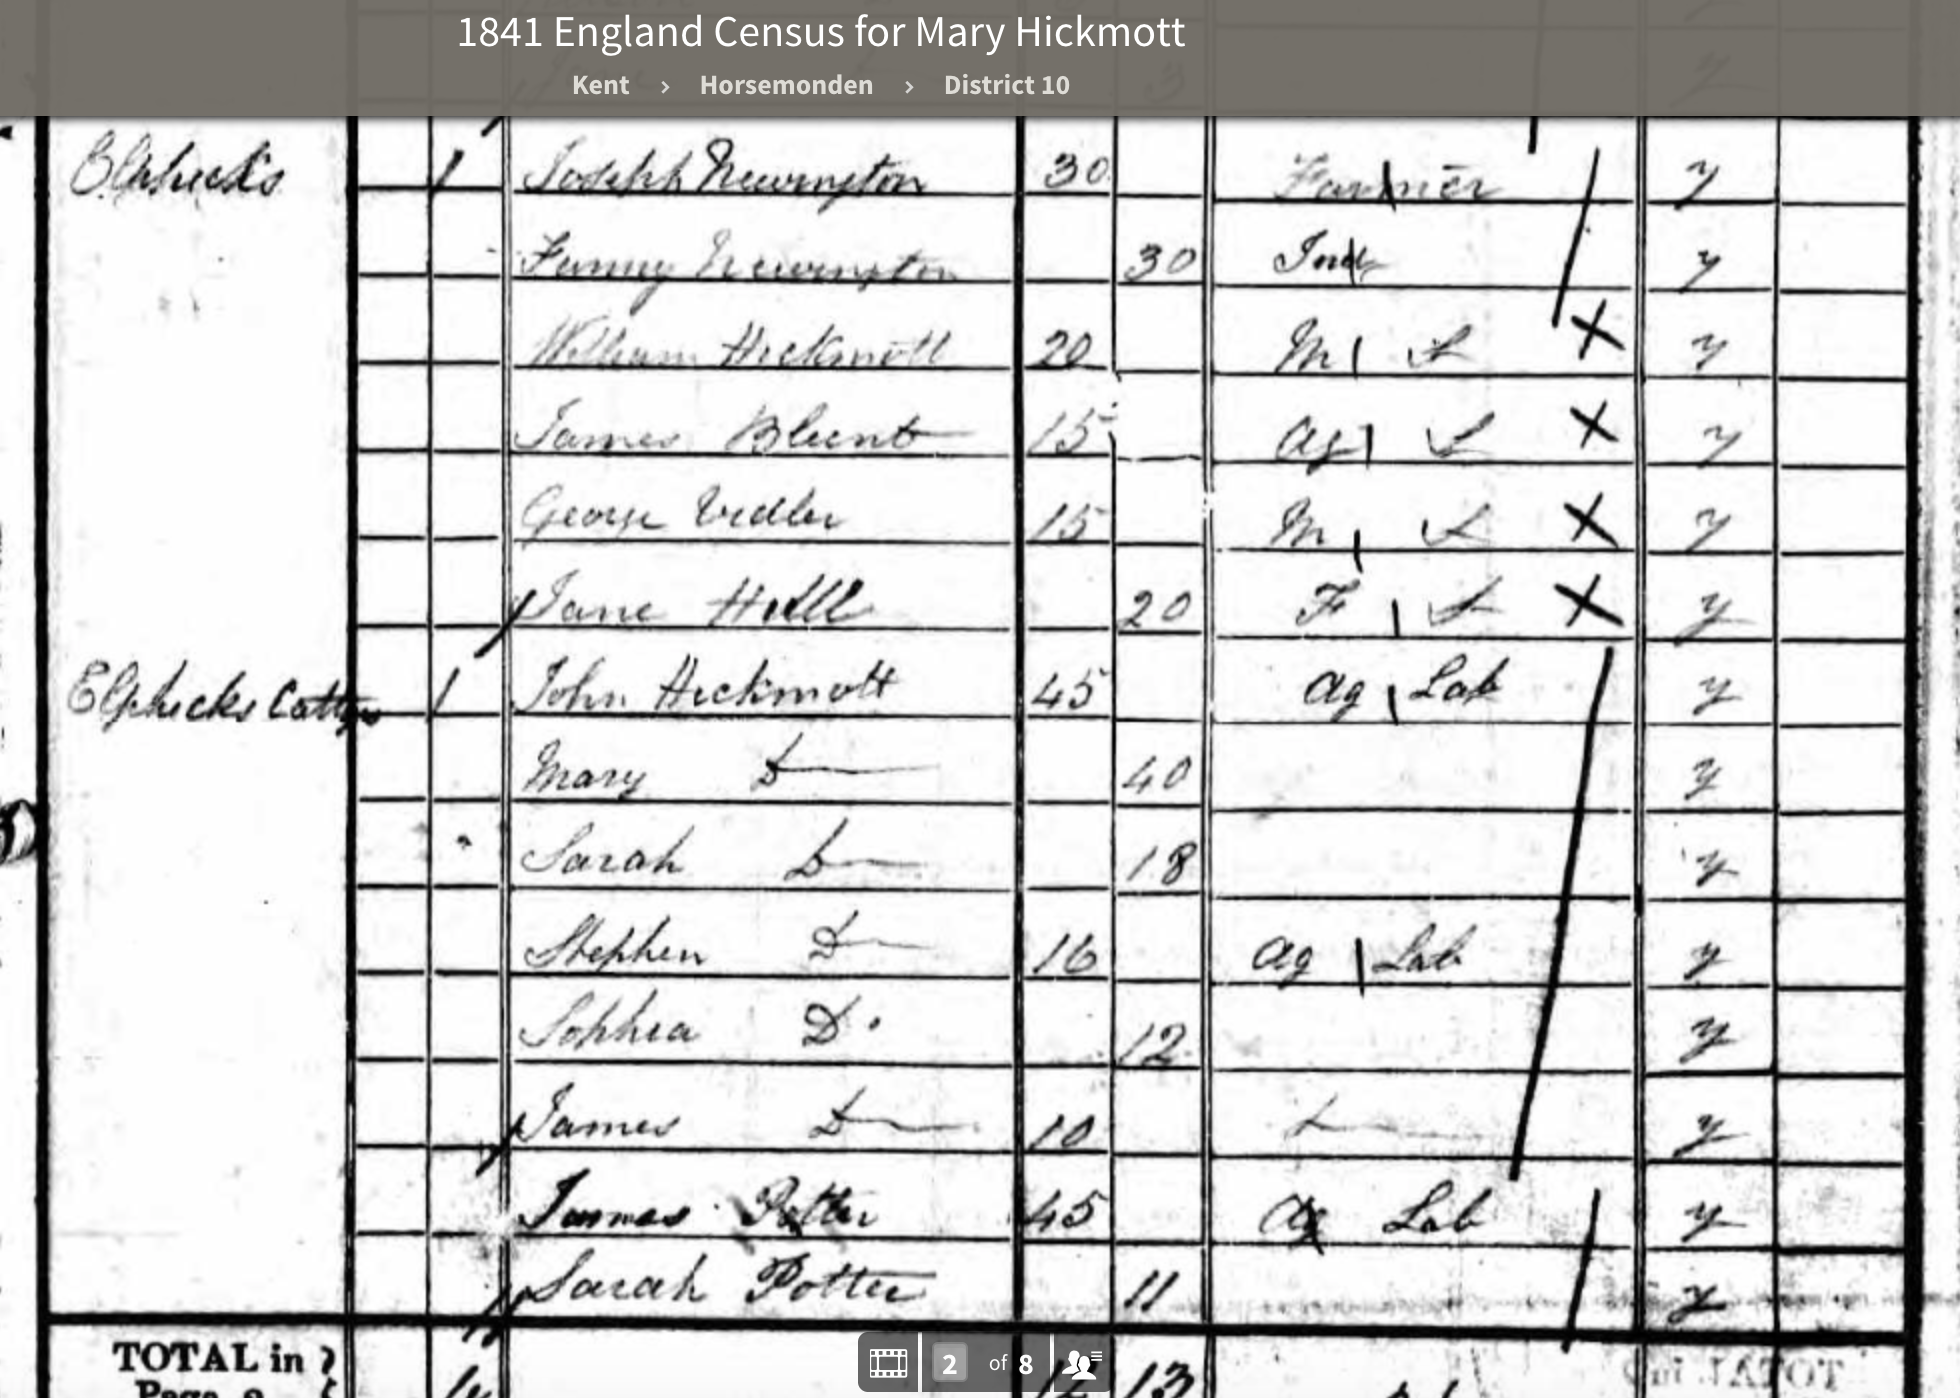 1841 England Census for Mary Hickmott
Kent › Horsemonden › District 10
Elphicks 1 Joseph Newington 30 Farmer y
Fanny Newington 30 Ind y
William Hickmott 20 M S X y
James Blunt 15 Ag S X y
George Vidler 15 M S X y
Jane Hill 20 F S X y
Elphicks Cottgs 1 John Hickmott 45 Ag Lab y
Mary D 40 y
Sarah D 18 y
Stephen D 16 Ag Lab y
Sophia D 12 y
James D 10 y
James Potter 45 Ag Lab y
Sarah Potter 11 y
TOTAL in
Page 2
13
2 of 8